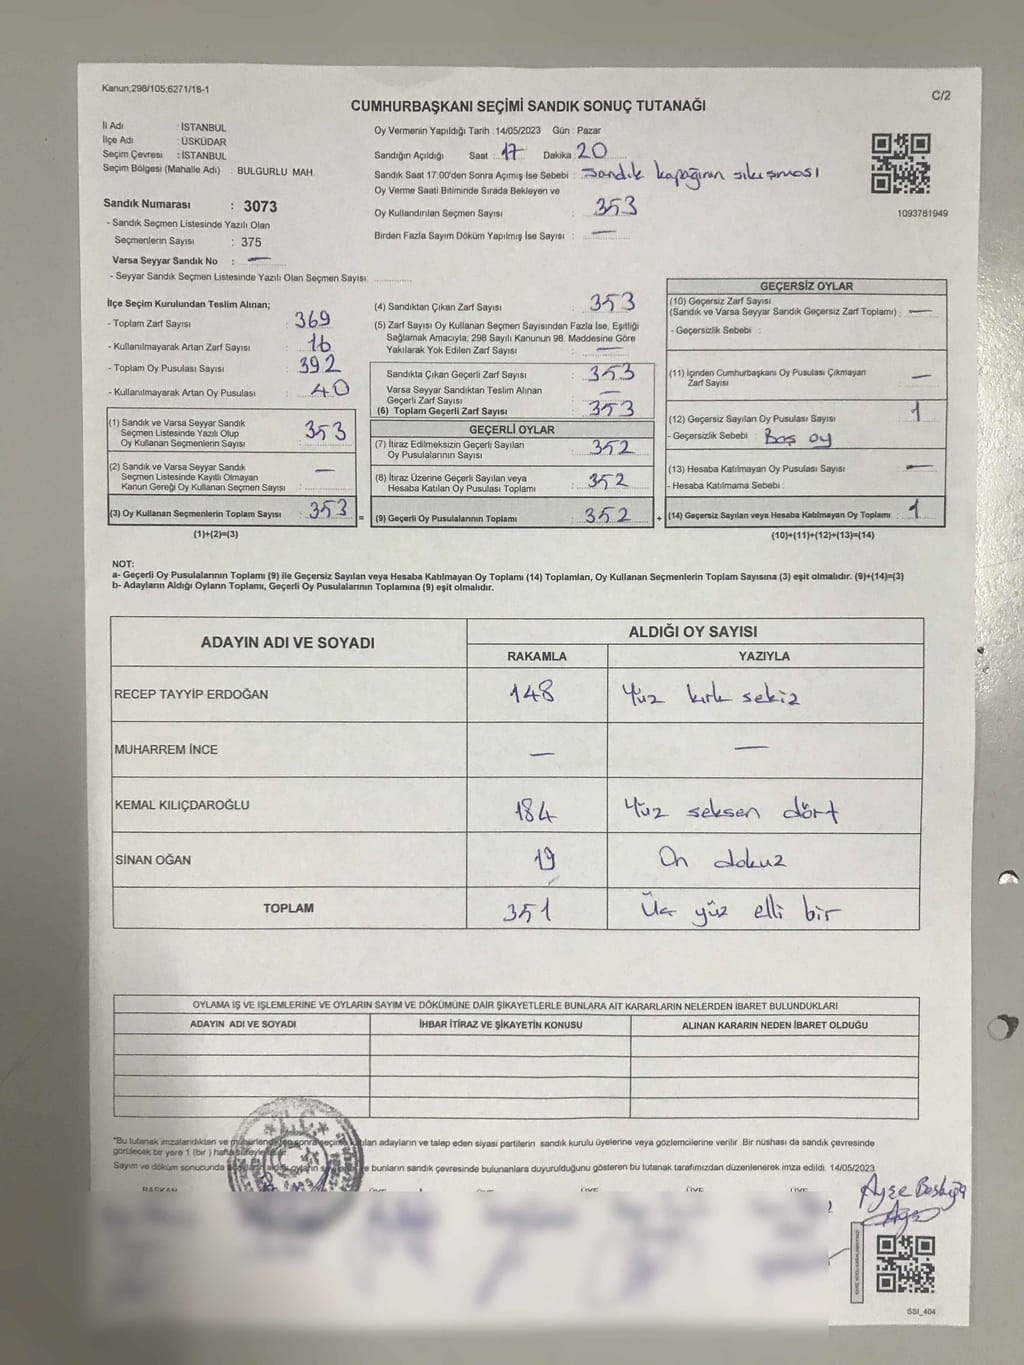 Kanun;298/105;6271/18-1
C/2
CUMHURBAŞKANI SEÇİMİ SANDIK SONUÇ TUTANAĞI
İl Adı : İSTANBUL
İlçe Adı : ÜSKÜDAR
Seçim Çevresi : İSTANBUL
Seçim Bölgesi (Mahalle Adı) : BULGURLU MAH.
Sandık Numarası : 3073
- Sandık Seçmen Listesinde Yazılı Olan
Seçmenlerin Sayısı : 375
Varsa Seyyar Sandık No : —
- Seyyar Sandık Seçmen Listesinde Yazılı Olan Seçmen Sayısı: ............
Oy Vermenin Yapıldığı Tarih : 14/05/2023 Gün : Pazar
Sandığın Açıldığı Saat : 17 Dakika : 20
Sandık Saat 17.00'den Sonra Açımış İse Sebebi : Sandık kapağının sıkışması
Oy Verme Saati Bitiminde Sırada Bekleyen ve
Oy Kullandırılan Seçmen Sayısı : 353
Birden Fazla Sayım Döküm Yapılmış İse Sayısı : —
1093781949
İlçe Seçim Kurulundan Teslim Alınan;
- Toplam Zarf Sayısı : 369
- Kullanılmayarak Artan Zarf Sayısı : 16
- Toplam Oy Pusulası Sayısı : 392
- Kullanılmayarak Artan Oy Pusulası : 40
(1) Sandık ve Varsa Seyyar Sandık
Seçmen Listesinde Yazılı Olup
Oy Kullanan Seçmenlerin Sayısı : 353
(2) Sandık ve Varsa Seyyar Sandık
Seçmen Listesinde Kayıtlı Olmayan
Kanun Gereği Oy Kullanan Seçmen Sayısı : —
(3) Oy Kullanan Seçmenlerin Toplam Sayısı : 353 =
(1)+(2)=(3)
(4) Sandıktan Çıkan Zarf Sayısı : 353
(5) Zarf Sayısı Oy Kullanan Seçmen Sayısından Fazla İse, Eşitliği
Sağlamak Amacıyla; 298 Sayılı Kanunun 98. Maddesine Göre
Yakılarak Yok Edilen Zarf Sayısı : —
Sandıkta Çıkan Geçerli Zarf Sayısı : 353
Varsa Seyyar Sandıktan Teslim Alınan
Geçerli Zarf Sayısı : —
(6) Toplam Geçerli Zarf Sayısı : 353
GEÇERLİ OYLAR
(7) İtiraz Edilmeksizin Geçerli Sayılan
Oy Pusulalarının Sayısı : 352
(8) İtiraz Üzerine Geçerli Sayılan veya
Hesaba Katılan Oy Pusulası Toplamı : 352
(9) Geçerli Oy Pusulalarının Toplamı : 352 +
GEÇERSİZ OYLAR
(10) Geçersiz Zarf Sayısı
(Sandık ve Varsa Seyyar Sandık Geçersiz Zarf Toplamı) : —
- Geçersizlik Sebebi :
(11) İçinden Cumhurbaşkanı Oy Pusulası Çıkmayan
Zarf Sayısı —
(12) Geçersiz Sayılan Oy Pusulası Sayısı 1
- Geçersizlik Sebebi : Boş oy
(13) Hesaba Katılmayan Oy Pusulası Sayısı : —
- Hesaba Katılmama Sebebi :
(14) Geçersiz Sayılan veya Hesaba Katılmayan Oy Toplamı : 1
(10)+(11)+(12)+(13)=(14)
NOT:
a- Geçerli Oy Pusulalarının Toplamı (9) ile Geçersiz Sayılan veya Hesaba Katılmayan Oy Toplamı (14) Toplamları, Oy Kullanan Seçmenlerin Toplam Sayısına (3) eşit olmalıdır. (9)+(14)=(3)
b- Adayların Aldığı Oyların Toplamı, Geçerli Oy Pusulalarının Toplamına (9) eşit olmalıdır.
ADAYIN ADI VE SOYADI ALDIĞI OY SAYISI
RAKAMLA YAZIYLA
RECEP TAYYİP ERDOĞAN 148 Yüz kırk sekiz
MUHARREM İNCE — —
KEMAL KILIÇDAROĞLU 184 Yüz seksen dört
SİNAN OĞAN 19 On dokuz
TOPLAM 351 Üç yüz elli bir
OYLAMA İŞ VE İŞLEMLERİNE VE OYLARIN SAYIM VE DÖKÜMÜNE DAİR ŞİKAYETLERLE BUNLARA AİT KARARLARIN NELERDEN İBARET BULUNDUKLARI
ADAYIN ADI VE SOYADI İHBAR İTİRAZ VE ŞİKAYETİN KONUSU ALINAN KARARIN NEDEN İBARET OLDUĞU
*Bu tutanak imzalandıktan ve mühürlendikten sonra seçime katılan adayların ve talep eden siyasi partilerin sandık kurulu üyelerine veya gözlemcilerine verilir. Bir nüshası da sandık çevresinde
görülecek bir yere 1 (bir) hafta süreyle
Sayım ve döküm sonucunda adayların aldığı oyların ve bunların sandık çevresinde bulunanlara duyurulduğunu gösteren bu tutanak tarafımızdan düzenlenerek imza edildi. 14/05/2023
BAŞKAN ÜYE ÜYE ÜYE ÜYE ÜYE
Ayşe
SSI_404